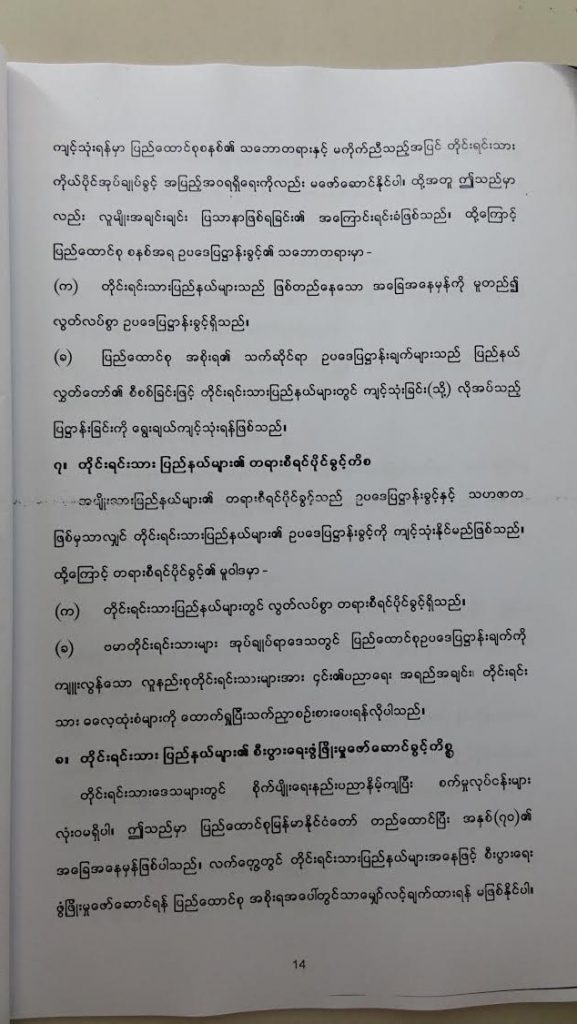 ကျင့်သုံးရန်မှာ ပြည်ထောင်စုစနစ်၏ သဘောတရားနှင့် မကိုက်ညီသည့်အပြင် တိုင်းရင်းသား
ကိုယ်ပိုင်အုပ်ချုပ်ခွင့် အပြည့်အဝရရှိရေးကိုလည်း မဖော်ဆောင်နိုင်ပါ။ ထို့အတူ ဤသည်မှာ
လည်း လူမျိုးအချင်းချင်း ပြဿနာဖြစ်ရခြင်း၏ အကြောင်းရင်းခံဖြစ်သည်။ ထို့ကြောင့်
ပြည်ထောင်စု စနစ်အရ ဥပဒေပြဋ္ဌာန်းခွင့်၏ သဘောတရားမှာ -
(က) တိုင်းရင်းသားပြည်နယ်များသည် ဖြစ်တည်နေသော အခြေအနေမှန်ကို မူတည်၍
လွတ်လပ်စွာ ဥပဒေပြဋ္ဌာန်းခွင့်ရှိသည်။
(ခ) ပြည်ထောင်စု အစိုးရ၏ သက်ဆိုင်ရာ ဥပဒေပြဋ္ဌာန်းချက်များသည် ပြည်နယ်
လွှတ်တော်၏ စီစစ်ခြင်းဖြင့် တိုင်းရင်းသားပြည်နယ်များတွင် ကျင့်သုံးခြင်း(သို့) လိုအပ်သည့်
ပြဋ္ဌာန်းခြင်းကို ရွေးချယ်ကျင့်သုံးရန်ဖြစ်သည်။
၇။ တိုင်းရင်းသား ပြည်နယ်များ၏ တရားစီရင်ပိုင်ခွင့်ကိစ
အမျိုးသားပြည်နယ်များ၏ တရားစီရင်ပိုင်ခွင့်သည် ဥပဒေပြဋ္ဌာန်းခွင့်နှင့် သဟဇာတ
ဖြစ်မှသာလျှင် တိုင်းရင်းသားပြည်နယ်များ၏ ဥပဒေပြဋ္ဌာန်းခွင့်ကို ကျင့်သုံးနိုင်မည်ဖြစ်သည်။
ထို့ကြောင့် တရားစီရင်ပိုင်ခွင့်၏ မူဝါဒမှာ -
(က) တိုင်းရင်းသားပြည်နယ်များတွင် လွတ်လပ်စွာ တရားစီရင်ပိုင်ခွင့်ရှိသည်။
(ခ) ဗမာတိုင်းရင်းသားများ အုပ်ချုပ်ရာဒေသတွင် ပြည်ထောင်စုဥပဒေပြဋ္ဌာန်းချက်ကို
ကျူးလွန်သော လူနည်းစုတိုင်းရင်းသားများအား ၄င်း၏ပညာရေး အရည်အချင်း၊ တိုင်းရင်း
သား ဓလေ့ထုံးစံများကို ထောက်ရှုပြီးသက်ညှာစဉ်းစားပေးရန်လိုပါသည်။
၈။ တိုင်းရင်းသား ပြည်နယ်များ၏ စီးပွားရေးဖွံ့ဖြိုးမှုဖော်ဆောင်ခွင့်ကိစ္စ
တိုင်းရင်းသားဒေသများတွင် စိုက်ပျိုးရေးနည်းပညာနိမ့်ကျပြီး စက်မှုလုပ်ငန်းများ
လုံးဝမရှိပါ။ ဤသည်မှာ ပြည်ထောင်စုမြန်မာနိုင်ငံတော် တည်ထောင်ပြီး အနှစ်(၇၀)၏
အခြေအနေမှန်ဖြစ်ပါသည်။ လက်တွေ့တွင် တိုင်းရင်းသားပြည်နယ်များအနေဖြင့် စီးပွားရေး
ဖွံ့ဖြိုးမှုဖော်ဆောင်ရန် ပြည်ထောင်စု အစိုးရအပေါ်တွင်သာမျှော်လင့်ချက်ထားရန် မဖြစ်နိုင်ပါ။
14